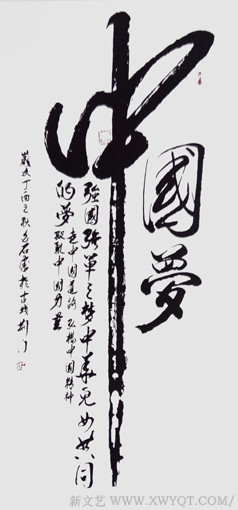 中
國夢
強國強軍之梦中華兒女共同
的夢
走中国道路弘揚中国精神
凝聚中国力量
歲次丁酉之秋
石書於古城荆门
新文艺 WWW.XWYQT.COM/